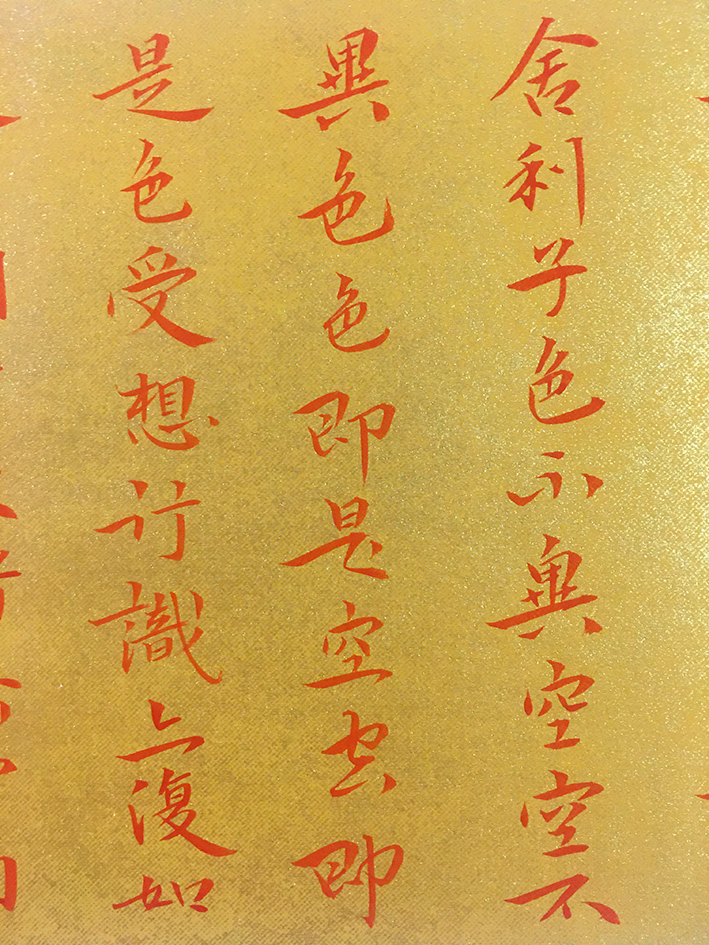 舍利子色不異空空不
異色色即是空空即
是色受想行識亦復如